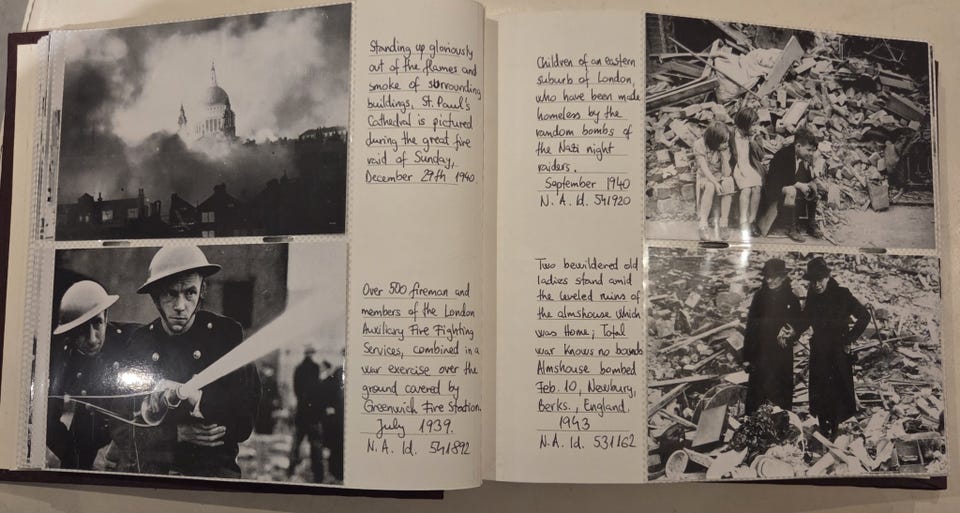 Standing up gloriously
out of the flames and
smoke of surrounding
buildings, St. Paul's
Cathedral is pictured
during the great fire
raid of Sunday,
December 29th 1940.
Over 500 fireman and
members of the London
Auxiliary Fire Fighting
Services, combined in a
war exercise over the
ground covered by
Greenwich Fire Station.
July 1939.
N. A. Id. 541892
Children of an eastern
suburb of London,
who have been made
homeless by the
random bombs of
the Nazi night
raiders.
September 1940
N. A. Id. 541920
Two bewildered old
ladies stand amid
the leveled ruins of
the almshouse which
was Home; Total
war knows no bounds
Almshouse bombed
Feb. 10, Newbury,
Berks., England.
1943
N. A. Id. 531162